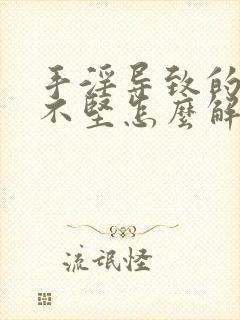 手淫导致的
不堅怎麼解
流氓怪